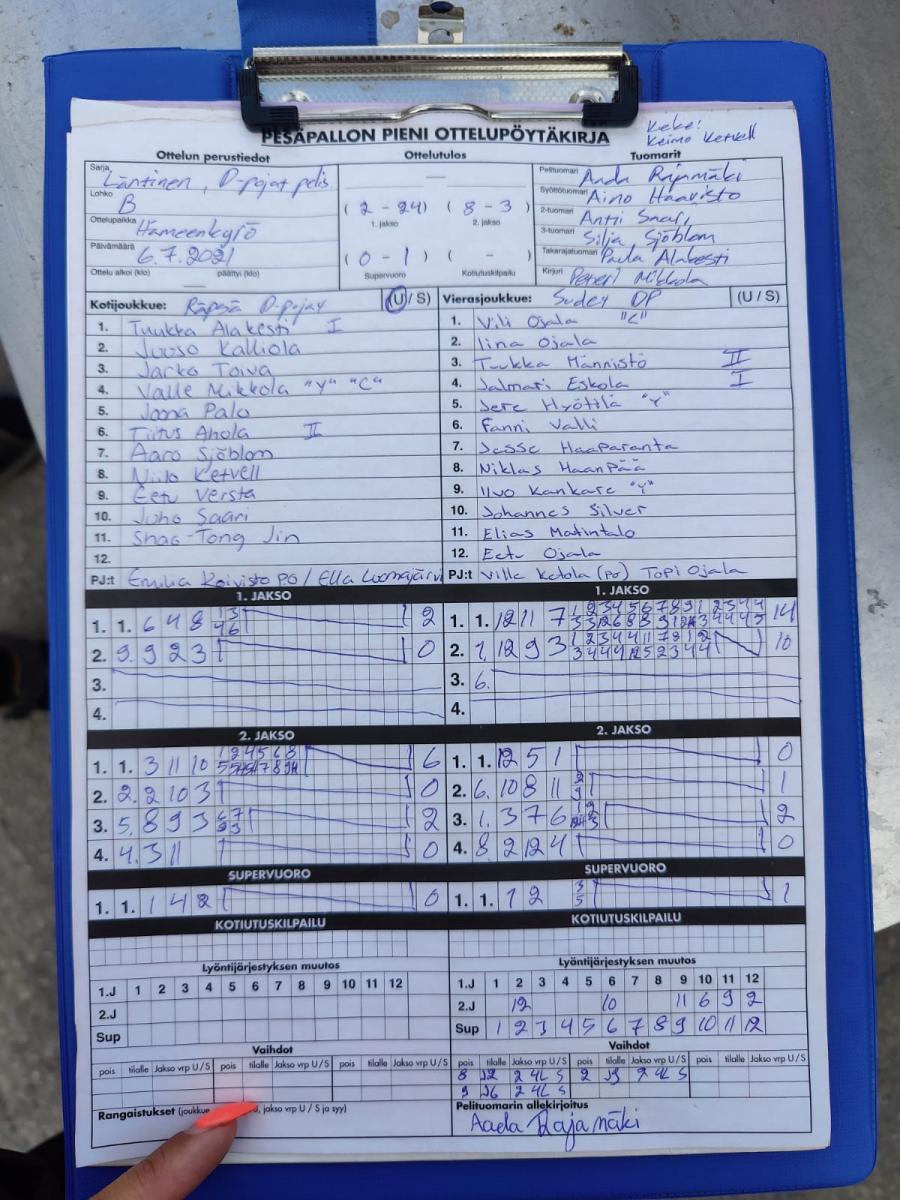 PESÄPALLON PIENI OTTELUPÖYTÄKIRJA
Keimo Ketvell
Ottelun perustiedot Ottelutulos Tuomarit
Sarja Läntinen, D-pojat pelis
Lohko B
Ottelupaikka Hämeenkyrö
Päivämäärä 6.7.2021
Ottelu alkoi (klo) päättyi (klo)
(2 - 24) (8 - 3)
1. jakso 2. jakso
(0 - 1) ( - )
Supervuoro Kotiutuskilpailu
Pelituomari
Syöttötuomari Aino Haavisto
2-tuomari Antti
3-tuomari Silja Sjöblom
Takarajatuomari Paula Alakesti
Kirjuri Mikkola
Kotijoukkue: Räpsä D-pojat (U / S)
1. Tuukka Alakesti I
2. Juuso Kalliola
3. Jarko Toiva
4. Valle Mikkola "Y" "C"
5. Joona Palo
6. Tiitus Ahola II
7. Aaro Sjöblom
8. Niilo Ketvell
9. Eetu Versta
10. Juho Saari
11. Shao-Tong Jin
12.
PJ:t Emilia Koivisto PÖ / Ella Luomajärvi
Vierasjoukkue: Sudet DP (U / S)
1. Vili Ojala "C"
2. Iina Ojala
3. Tuukka Männistö II
4. Jalmari Eskola I
5. Jere Hyöttlä "Y"
6. Fanni Valli
7. Jesse Haaparanta
8. Niklas Haanpää
9. Ilvo Kankare "Y"
10. Johannes Silver
11. Elias Matintalo
12. Eetu Ojala
PJ:t Ville Ketola (PÖ) Topi Ojala
1. JAKSO
1. 1. 6 4 8 2
2. 9. 9 2 3 0
3.
4.
1. JAKSO
1. 1. 12 11 7 14
2. 7. 12 9 3 10
3. 6.
4.
2. JAKSO
1. 1. 3 11 10 6
2. 2. 2 10 3 0
3. 5. 8 9 3 2
4. 4. 3 11 0
2. JAKSO
1. 1. 12 5 1 0
2. 6. 10 8 11 1
3. 1. 3 7 6 2
4. 8 2 12 4 0
SUPERVUORO
1. 1. 1 4 2 0
SUPERVUORO
1. 1. 7 2 3 5 1
KOTIUTUSKILPAILU
KOTIUTUSKILPAILU
Lyöntijärjestyksen muutos
1.J 1 2 3 4 5 6 7 8 9 10 11 12
2.J
Sup
Lyöntijärjestyksen muutos
1.J 1 2 3 4 5 6 7 8 9 10 11 12
2.J 12 10 11 6 9 2
Sup 1 2 3 4 5 6 7 8 9 10 11 12
Vaihdot
pois tilalle Jakso vrp U/S pois tilalle Jakso vrp U/S pois tilalle Jakso vrp U/S
Rangaistukset (joukkue jakso vrp U / S ja syy)
Vaihdot
pois tilalle Jakso vrp U/S pois tilalle Jakso vrp U/S pois tilalle Jakso vrp U/S
Pelituomarin allekirjoitus
Aada Rajamäki